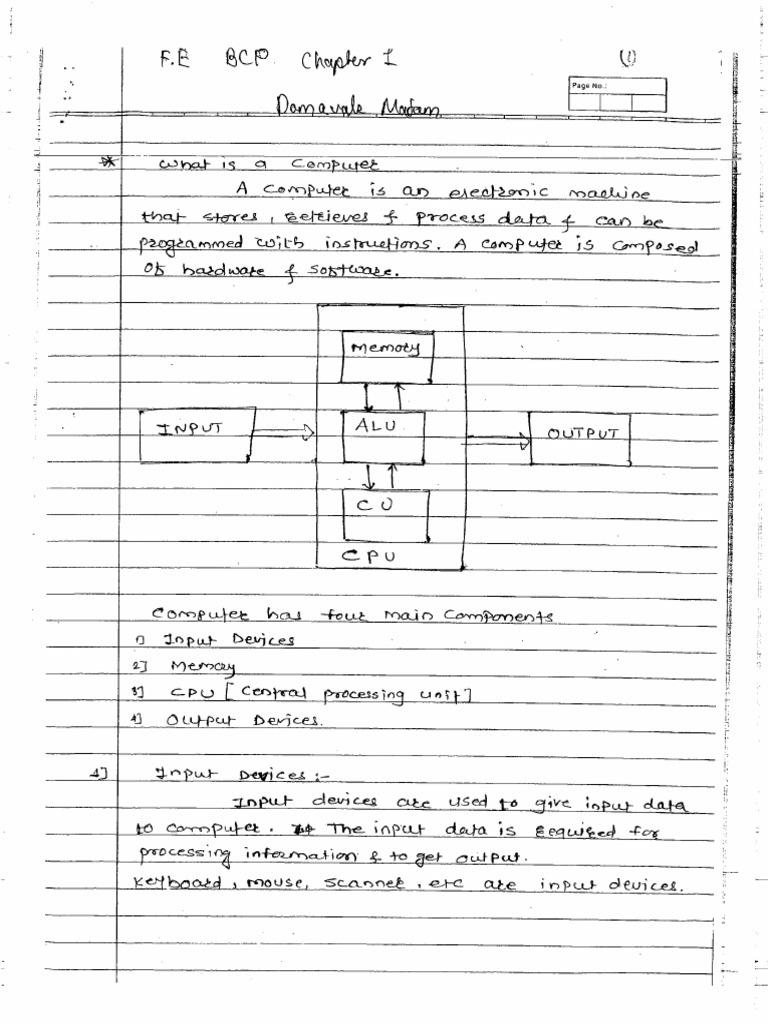 F.E BCP Chapter 1
(1)
Page No.:
Damavale Madam
* What is a computer
A computer is an electronic machine
that stores, retrieves & process data & can be
programmed with instructions. A computer is composed
of hardware & software.
Memory
INPUT
ALU
OUTPUT
CU
CPU
Computer has four main components
1) Input Devices
2] Memory
3] CPU [Central processing unit]
4] Output Devices.
1] Input Devices :-
Input devices are used to give input data
to computer. The input data is required for
processing information & to get output.
Keyboard, mouse, scanner, etc are input devices.